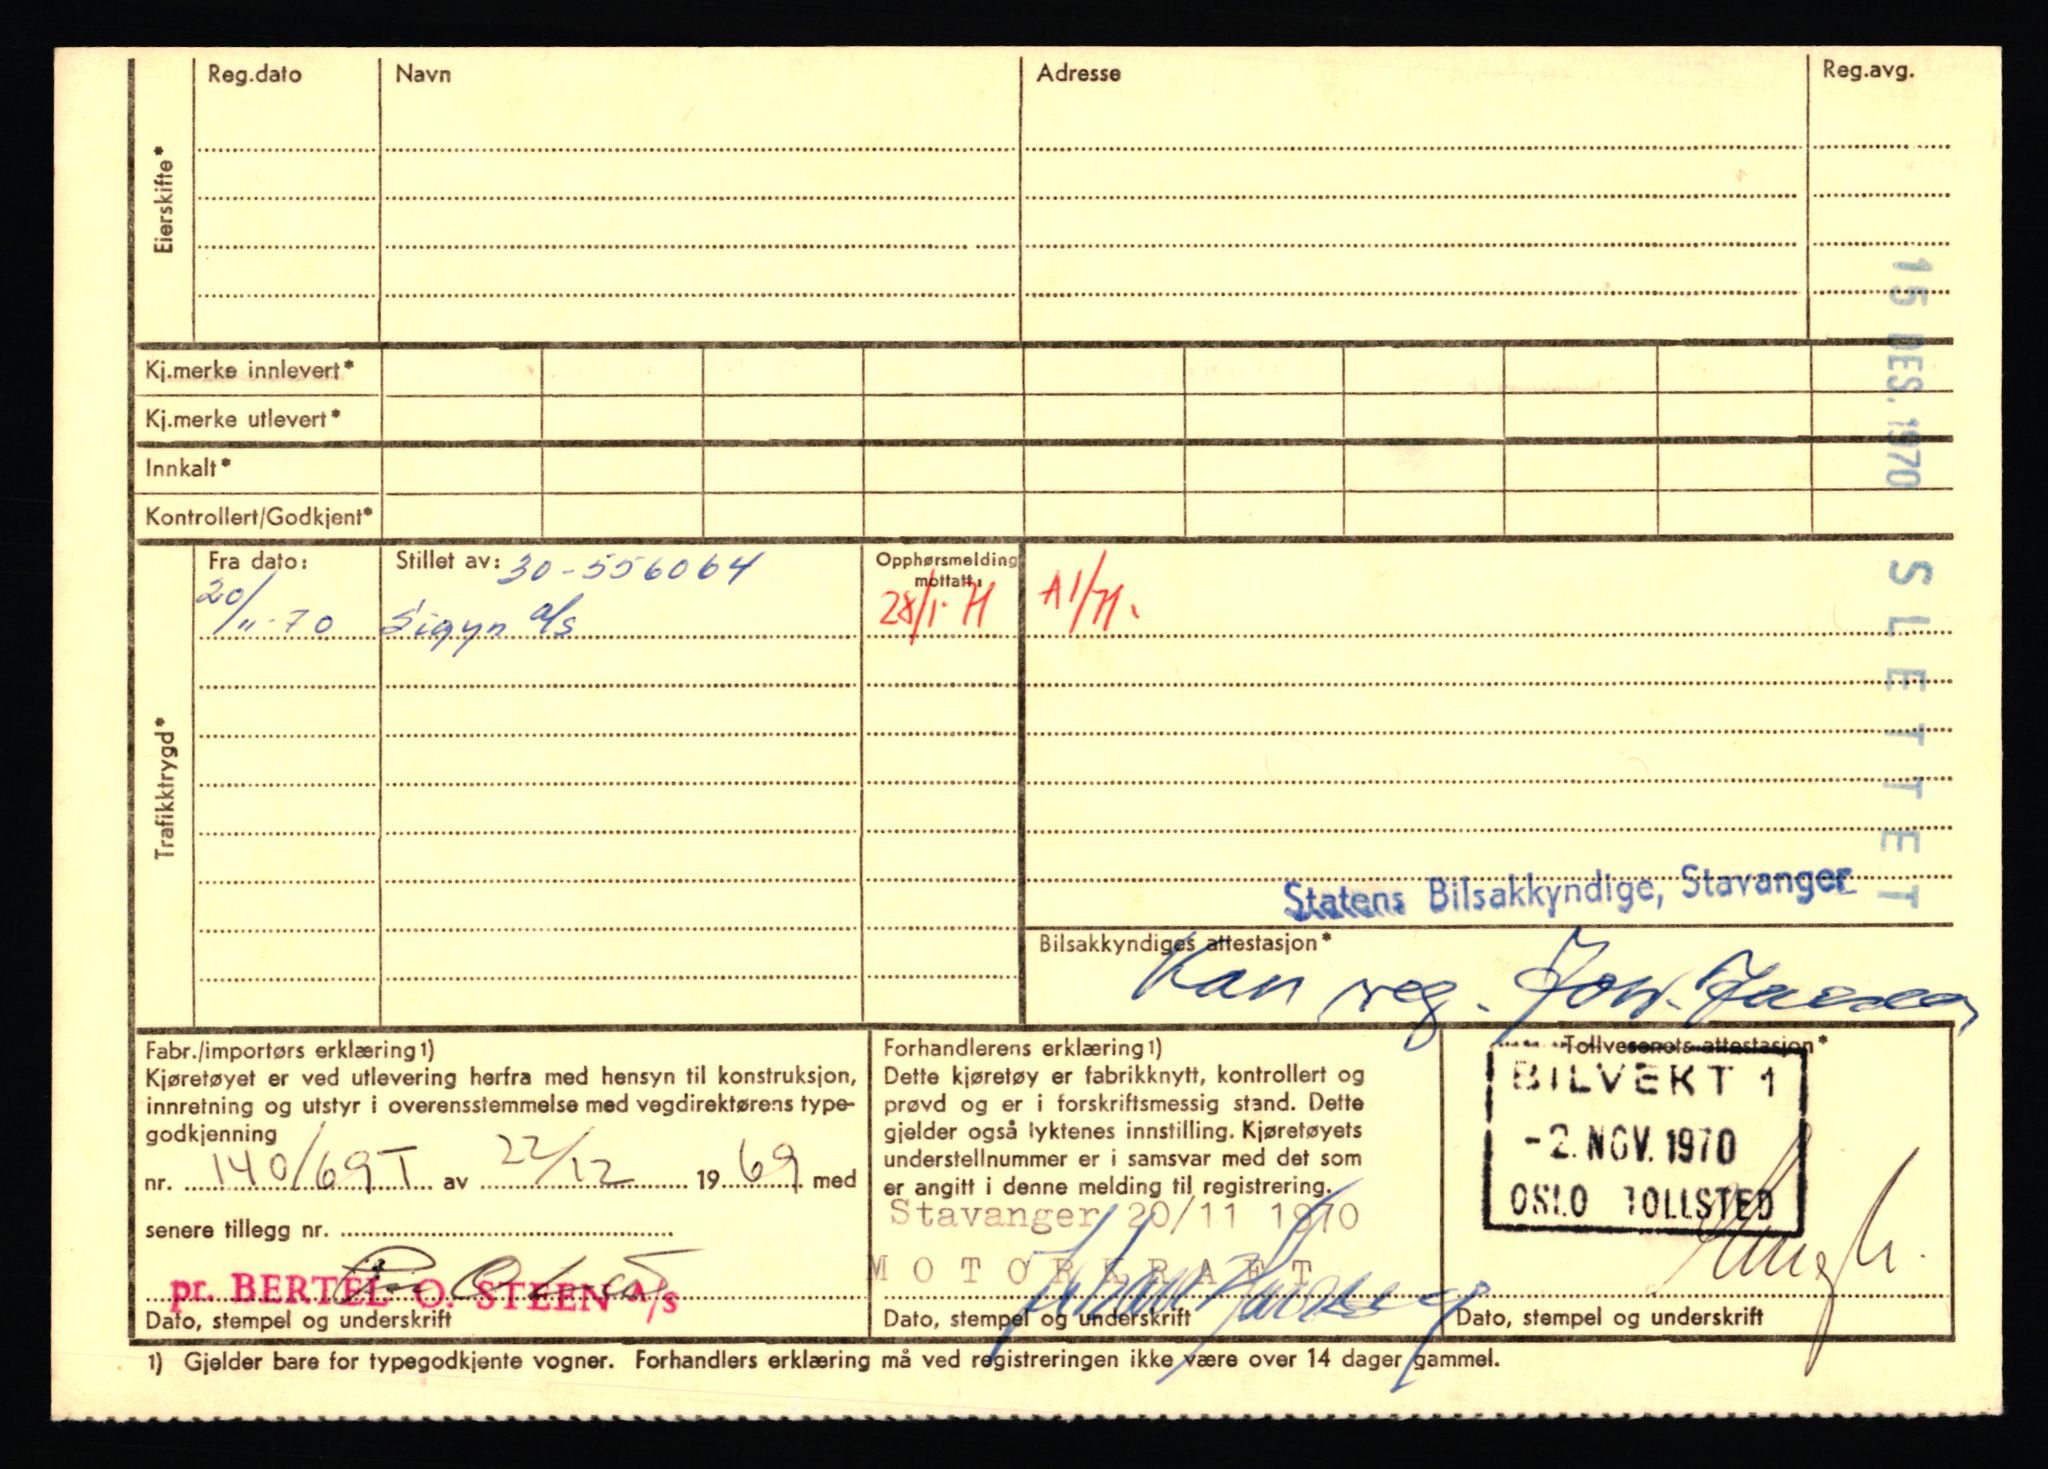 Eierskifte*
Reg.dato
Navn
Adresse
Reg.avg.
Kj.merke innlevert*
Kj.merke utlevert*
Innkalt*
Kontrollert/Godkjent*
15 DES. 1970
SLETTET
Trafikktrygd*
Fra dato:
20/11-70
Stillet av: 30-556064
Sigyn a/s
Opphørsmelding
mottatt:
28/1-71
A1/71.
Statens Bilsakkyndige, Stavanger
Bilsakkyndiges attestasjon*
Kan reg.
Fabr./importørs erklæring1)
Kjøretøyet er ved utlevering herfra med hensyn til konstruksjon,
innretning og utstyr i overensstemmelse med vegdirektørens type-
godkjenning
nr. 140/69T av 22/12 1969 med
senere tillegg nr.
pr. BERTEL O. STEEN A/S
Dato, stempel og underskrift
Forhandlerens erklæring1)
Dette kjøretøy er fabrikknytt, kontrollert og
prøvd og er i forskriftsmessig stand. Dette
gjelder også lyktenes innstilling. Kjøretøyets
understellnummer er i samsvar med det som
er angitt i denne melding til registrering.
Stavanger 20/11 1970
MOTORKRAFT
Dato, stempel og underskrift
Tollvesenets attestasjon*
BILVEKT 1
-2. NOV. 1970
OSLO TOLLSTED
Dato, stempel og underskrift
1) Gjelder bare for typegodkjente vogner. Forhandlers erklæring må ved registreringen ikke være over 14 dager gammel.